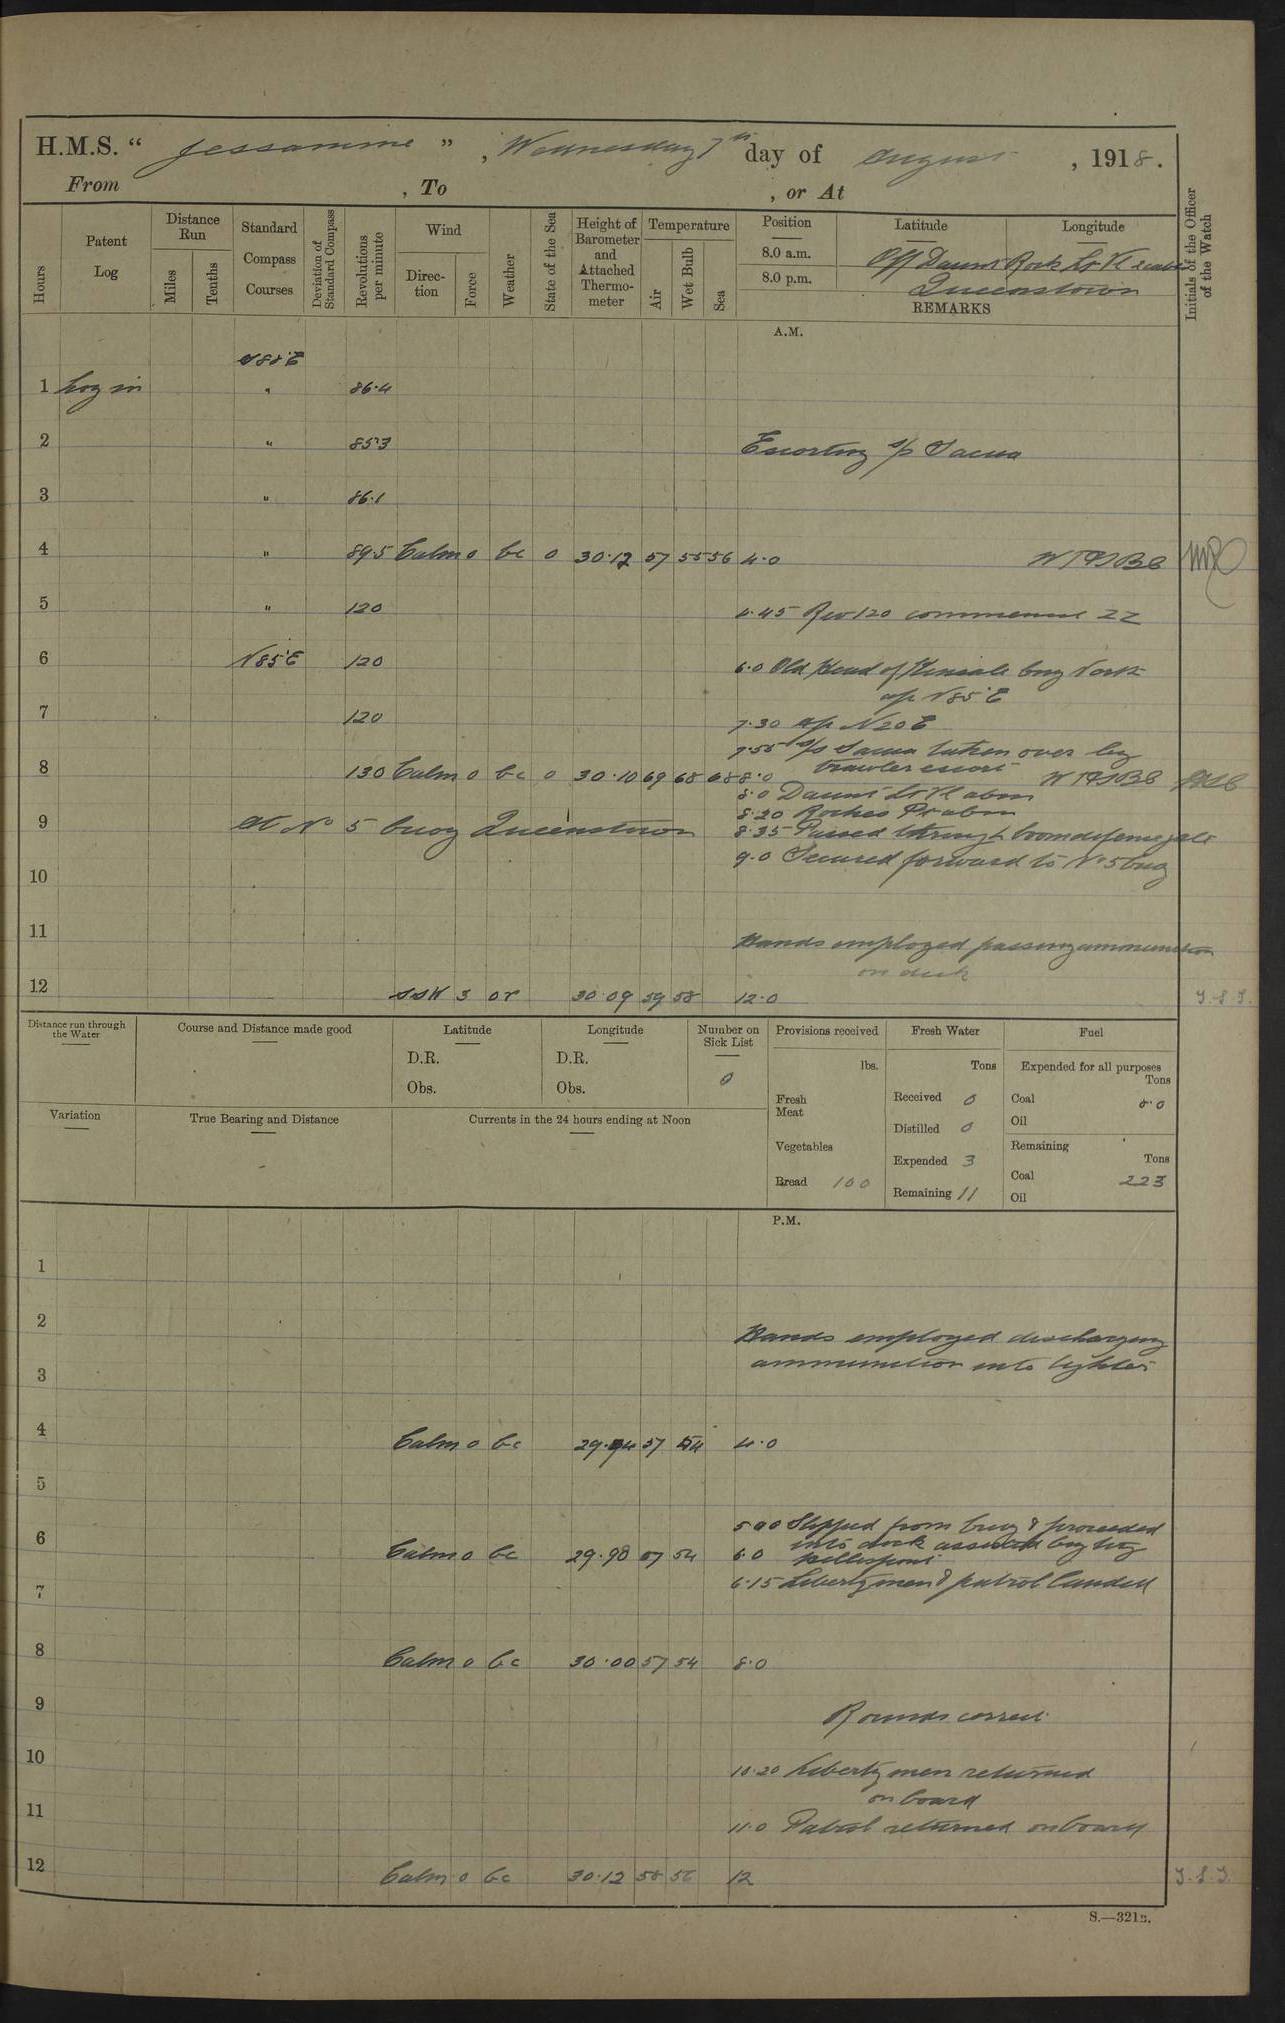 H.M.S. " Jessamine " , Wednesday 7th day of August , 1918.
From , To , or At
Hours
Patent Log
Distance Run
Miles
Tenths
Standard Compass Courses
Deviation of Standard Compass
Revolutions per minute
Wind
Direction
Force
Weather
State of the Sea
Height of Barometer and Attached Thermometer
Temperature
Air
Wet Bulb
Sea
Position
Latitude
Longitude
8.0 a.m. Off Daunt Rock Lt Vl
8.0 p.m. Queenstown
REMARKS
Initials of the Officer of the Watch
A.M.
S 85° E
1 Log in " 86.4
2 " 85.3 Escorting s/s
3 " 86.1
4 " 89.5 Calm 0 bc 0 30.12 57 55 56 4.0
5 " 120 4.45 Rev 120 commenced ZZ
6 N85°E 120 6.0 Old Head of Kinsale brg North
a/c N 85° E
7 120 7.30 a/c N 20 E
7.55 s/s taken over by
trawler escort
8 130 Calm 0 bc 0 30.10 69 68 68 8.0
8.0 Daunt Lt Vl abm
8.20 Roches Pt abm
9 At No 5 buoy Queenstown 8.35 Passed through boom defence gate
9.0 Secured forward to No 5 buoy
10
11 Hands employed passing ammunition
on deck
12 SSW 3 or 30.09 59 58 12.0 J.S.J.
Distance run through the Water
Course and Distance made good
Latitude
D.R.
Obs.
Longitude
D.R.
Obs.
Number on Sick List
0
Provisions received
lbs.
Fresh Meat
Vegetables
Bread 100
Fresh Water
Tons
Received 0
Distilled 0
Expended 3
Remaining 11
Fuel
Expended for all purposes
Tons
Coal
Oil
Remaining
Tons
Coal 223
Oil
Variation
True Bearing and Distance
Currents in the 24 hours ending at Noon
P.M.
1
2 Hands employed discharging
3 ammunition into lighter
4 Calm 0 bc 29.94 57 54 4.0
5
Slipped from buoy & proceeded
into dock assisted by tug
6 Calm 0 bc 29.98 57 54 6.0
6.15 Libertymen & patrol landed
7
8 Calm 0 bc 30.00 57 54 8.0
9 Rounds correct
10 10.20 Liberty men returned
on board
11 11.0 Patrol returned on board
12 Calm 0 bc 30.12 58 56 12 J.S.J.
S.—321B.